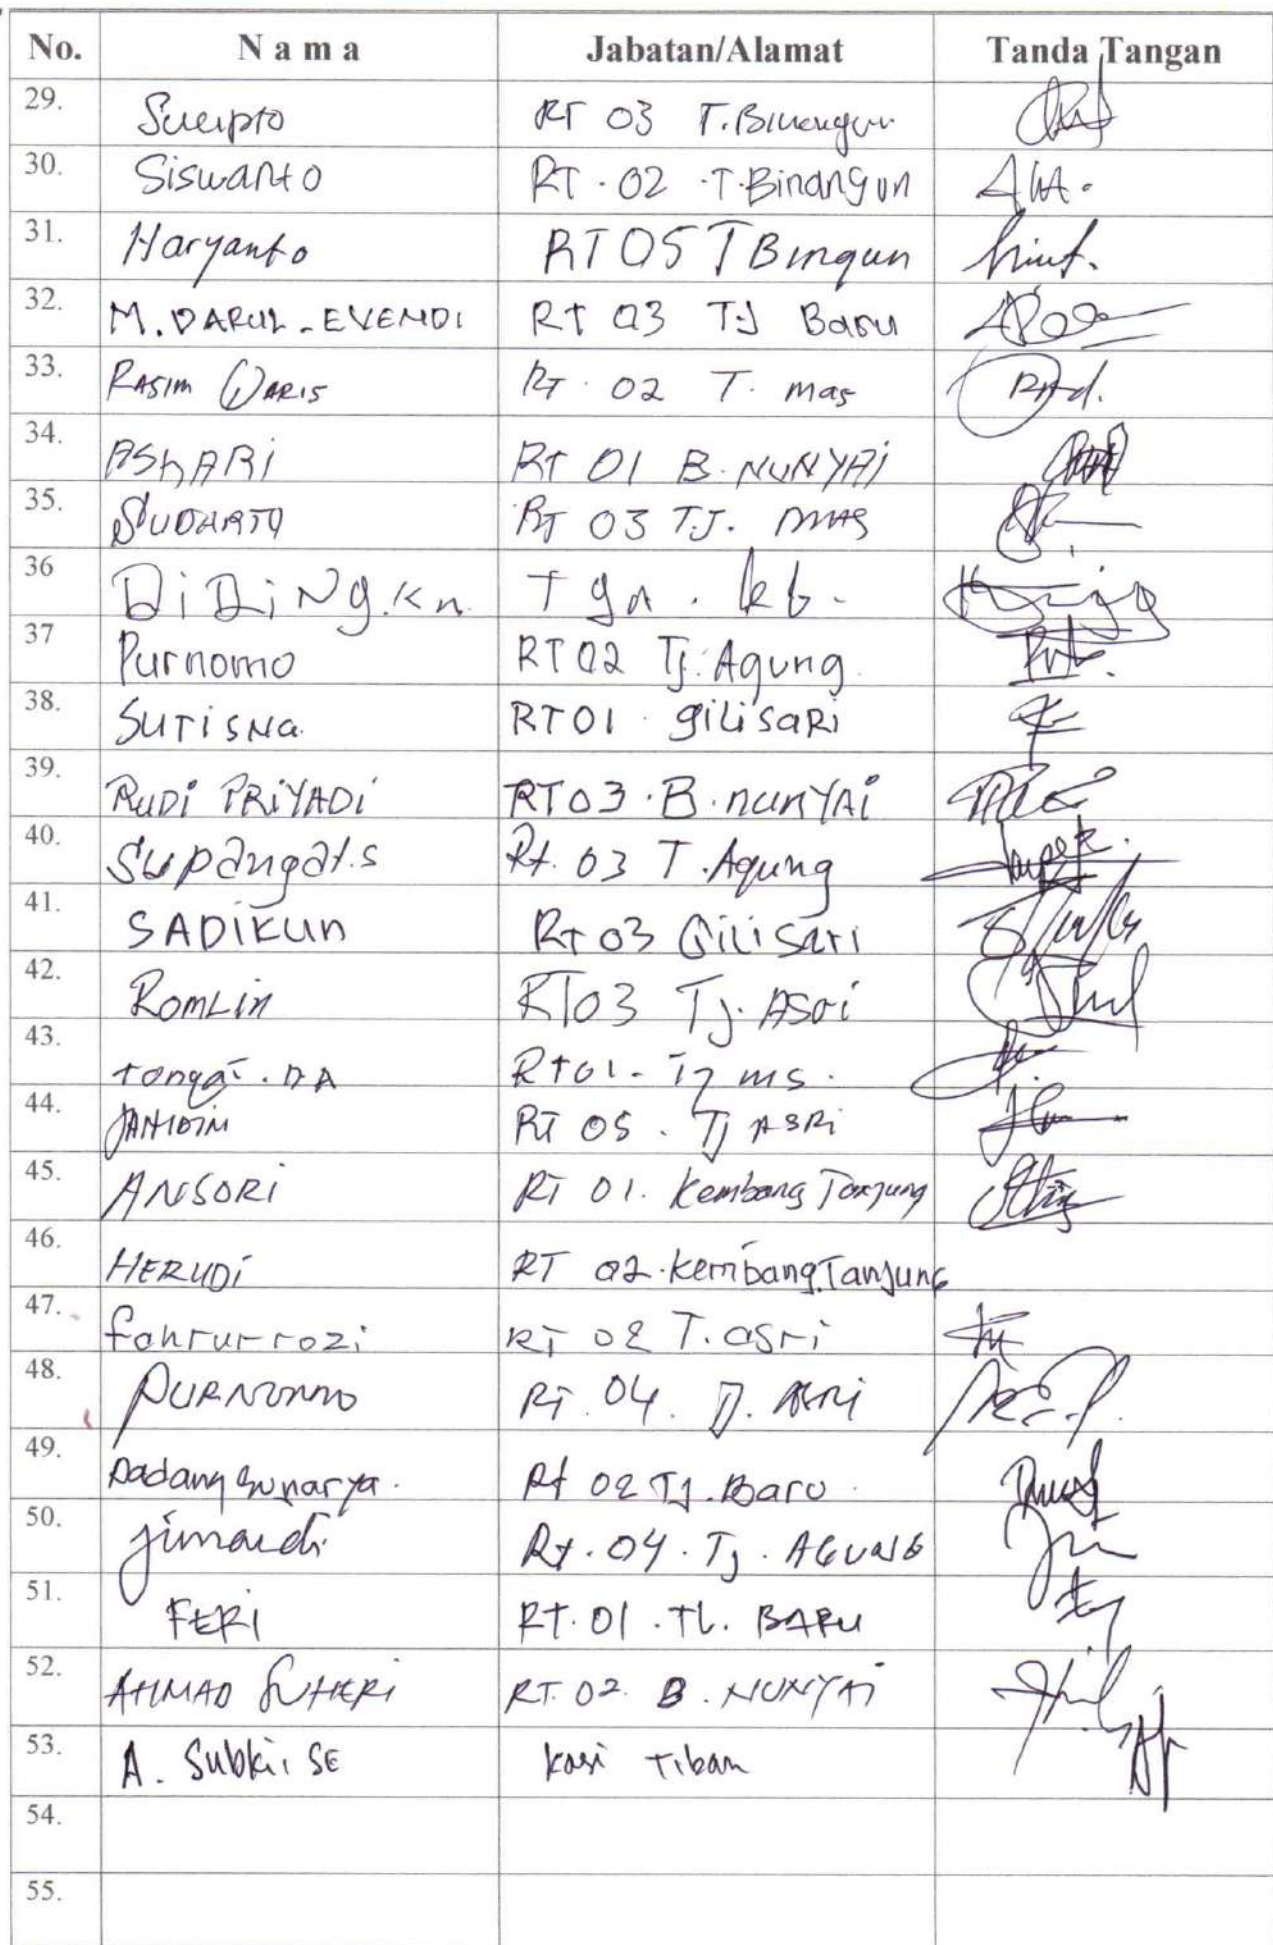 No. N a m a Jabatan/Alamat Tanda Tangan
29. Sucipto RT 03 T. Binangun
30. Siswanto RT. 02 T. Binangun
31. Haryanto RT 05 T Bingun
32. M. DARUL. EVENDI Rt 03 TJ Baru
33. RASIM WARIS RT. 02 T. mas
34. ASHARI RT 01 B. NUNYAI
35. SUDARTO RT 03 TJ. MAS
36 DiDiNg. Kn. Tgn. kb.
37 Purnomo RT 02 Tj. Agung
38. SUTiSNa. RT 01 giliSaRi
39. RuDi PRiYADi RT 03. B. nunYAi
40. Supangat.s Rt. 03 T. Agung
41. SADIKUn Rt 03 Gilisari
42. RomLin RT 03 Tj. ASri
43. Tongat. DA Rt 01. Tj ms.
44. JAHIDIN RT 05. Tj ASRi
45. ANSORi RT 01. Kembang Tanjung
46. HERUDi RT 02. Kembang Tanjung
47. fahrurrozi RT 02 T. asri
48. PURNOMO RT. 04. TJ. ASRi
49. Dadang Sunarya. Rt 02 Tj. Baru
50. Jimardi Rt. 04. Tj. AGUNG
51. FERI RT. 01. TL. BARU
52. AHMAD SUHERi RT. 02. B. NUNYAi
53. A. Subki, SE kasi Tiban
54.
55.